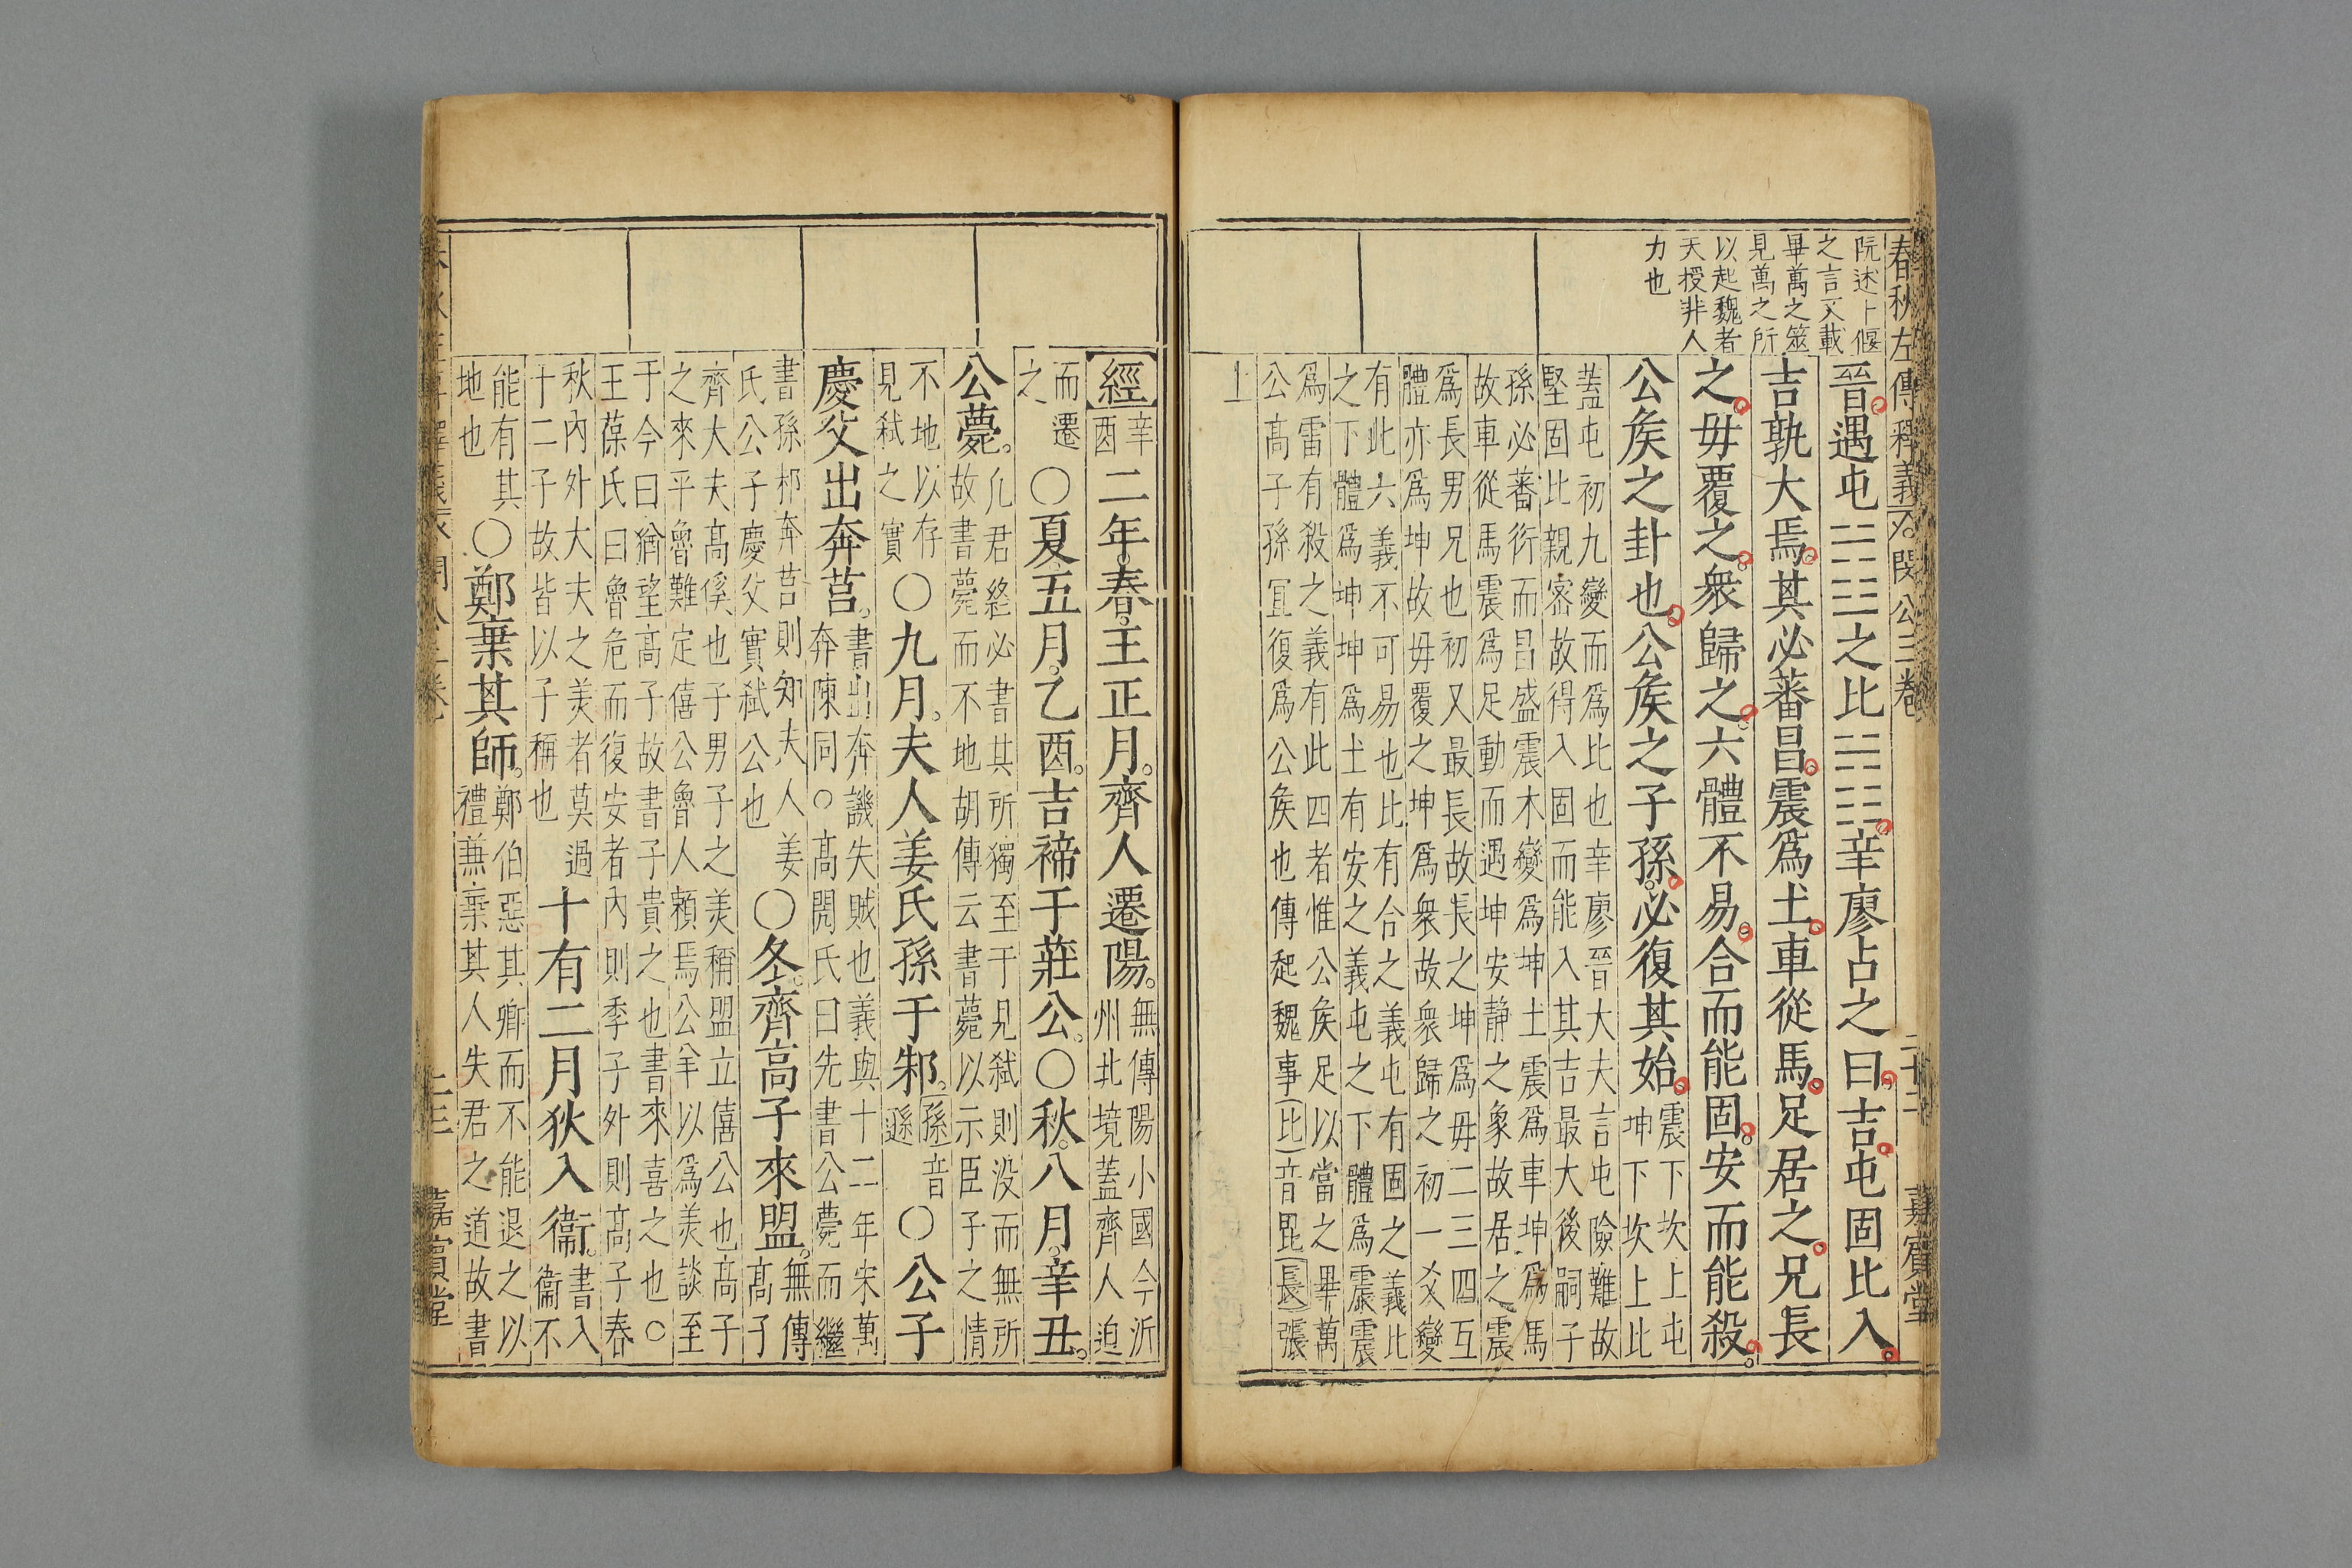 春秋左傳釋義 閔公三卷 二十二 嘉賓堂
阮述卜偃
之言又載
畢萬之筮
見萬之所
以起魏者
天授非人
力也
晉遇屯䷂之比䷇辛廖占之曰吉屯固比入
吉孰大焉其必蕃昌震爲土車從馬足居之兄長
之毋覆之衆歸之六體不易合而能固安而能殺
公侯之卦也公侯之子孫必復其始震下坎上屯
坤下坎上比
蓋屯初九變而爲比也辛廖晉大夫言屯險難故
堅固比親密故得入固而能入其吉最大後嗣子
孫必蕃衍而昌盛震木變爲坤土震爲車坤爲馬
故車從馬震爲足動而遇坤安靜之象故居之震
爲長男兄也初又最長故長之坤爲毋二三四互
體亦爲坤故毋覆之坤爲衆故衆歸之初一爻變
有此六義不可易也比有合之義屯有固之義比
之下體爲坤坤爲土有安之義屯之下體爲震震
爲雷有殺之義有此四者惟公侯足以當之畢萬
公高子孫宜復爲公侯也傳起魏事比音毘長張
上
經辛酉二年春王正月齊人遷陽無傳陽小國今沂
州北境蓋齊人迫
而遷
之○夏五月乙酉吉禘于莊公○秋八月辛丑
公薨凡君終必書其所獨至于見弒則没而無所
故書薨而不地胡傳云書薨以示臣子之情
不地以存
見弒之實○九月夫人姜氏孫于邾孫音
遜○公子
慶父出奔莒書出奔譏失賊也義與十二年宋萬
奔陳同○高閌氏曰先書公薨而繼
書孫邾奔莒則知夫人姜
氏公子慶父實弒公也○冬齊高子來盟無傳
高子
齊大夫高傒也子男子之美稱盟立僖公也高子
之來平魯難定僖公魯人賴焉公羊以爲美談至
于今曰猶望高子故書子貴之也書來喜之也○
王葆氏曰魯危而復安者内則季子外則高子春
秋内外大夫之美者莫過
十二子故皆以子稱也十有二月狄入衞書入
衞不
能有其
地也○鄭棄其師鄭伯惡其卿而不能退之以
禮兼棄其人失君之道故書
嘉賓堂